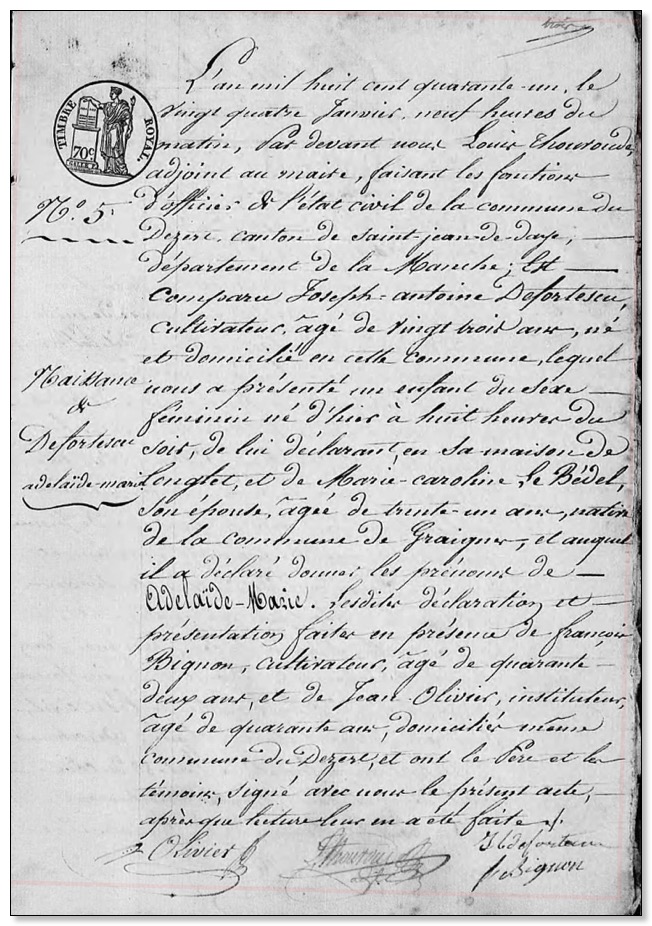 TIMBRE ROYAL
70c
L'an mil huit cent quarante-un, le
vingt quatre Janvier, neuf heures du
matin, Par devant nous Louis Thouroude,
adjoint au maire, faisant les fonctions
N.o 5
d'officier de l'état civil de la commune du
Dezert, canton de saint jean-de-daye,
département de la Manche; Est
Comparu Joseph-antoine Defortescu,
cultivateur, âgé de vingt trois ans, né
et domicilié en cette commune, lequel
Naissance
de
Defortescu
adelaïde-marie
nous a présenté un enfant du sexe
féminin né d'hier à huit heures du
soir, de lui déclarant, en sa maison de
Longtet, et de Marie-caroline Le Bédel,
son épouse, âgée de trente-un ans, native
de la commune de Graignes, et auquel
il a déclaré donner les prénoms de
Adelaïde-Marie. Lesdites déclaration et
présentation faites en présence de françois
Bignon, cultivateur, âgé de quarante
deux ans, et de Jean Olivier, instituteur,
âgé de quarante ans, domiciliés même
commune du Dezert, et ont le Père et les
témoins, signé avec nous le présent acte,
après que lecture leur en a été faite ./.
Olivier
Thouroude
f. Bignon